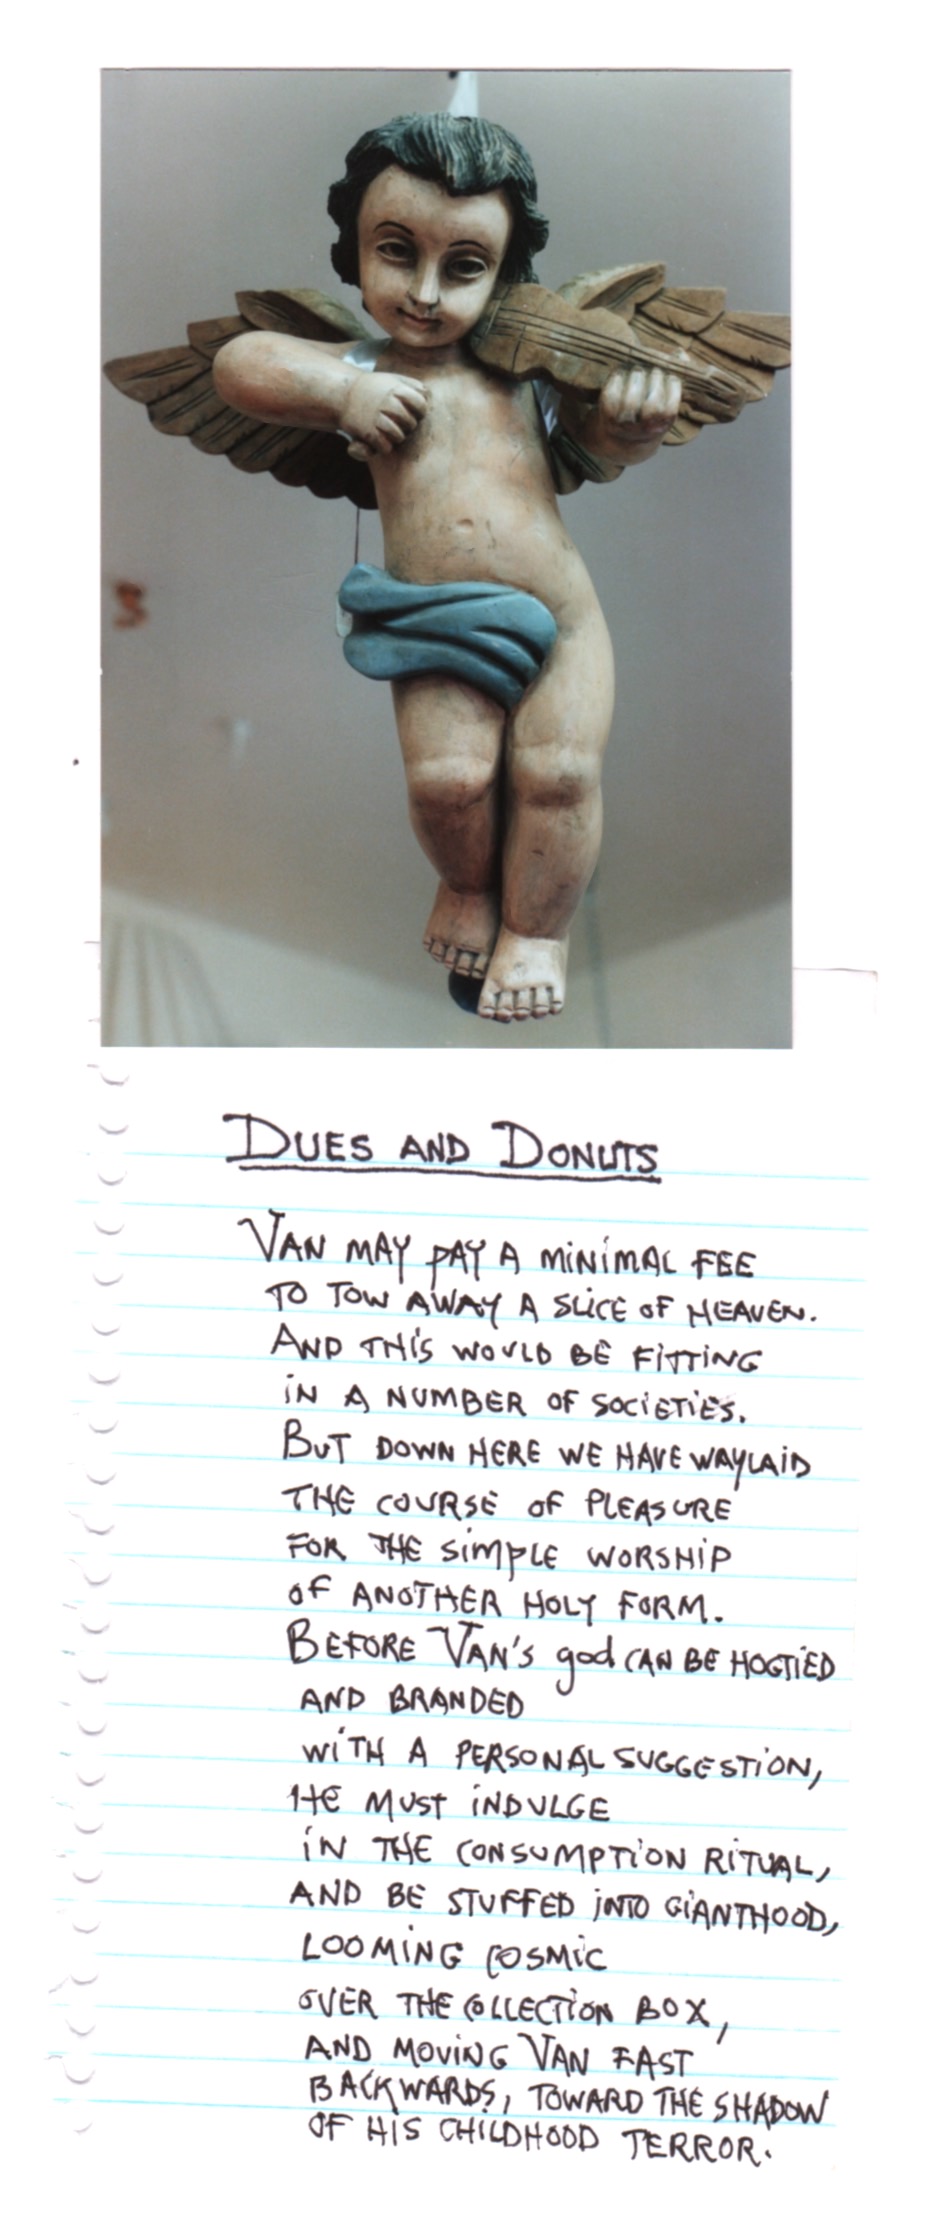 DUES AND DONUTS
VAN MAY PAY A MINIMAL FEE
TO TOW AWAY A SLICE OF HEAVEN.
AND THIS WOULD BE FITTING
IN A NUMBER OF SOCIETIES.
BUT DOWN HERE WE HAVE WAYLAID
THE COURSE OF PLEASURE
FOR THE SIMPLE WORSHIP
OF ANOTHER HOLY FORM.
BEFORE VAN'S god CAN BE HOGTIED
AND BRANDED
WITH A PERSONAL SUGGESTION,
HE MUST INDULGE
IN THE CONSUMPTION RITUAL,
AND BE STUFFED INTO GIANTHOOD,
LOOMING COSMIC
OVER THE COLLECTION BOX,
AND MOVING VAN FAST
BACKWARDS, TOWARD THE SHADOW
OF HIS CHILDHOOD TERROR.